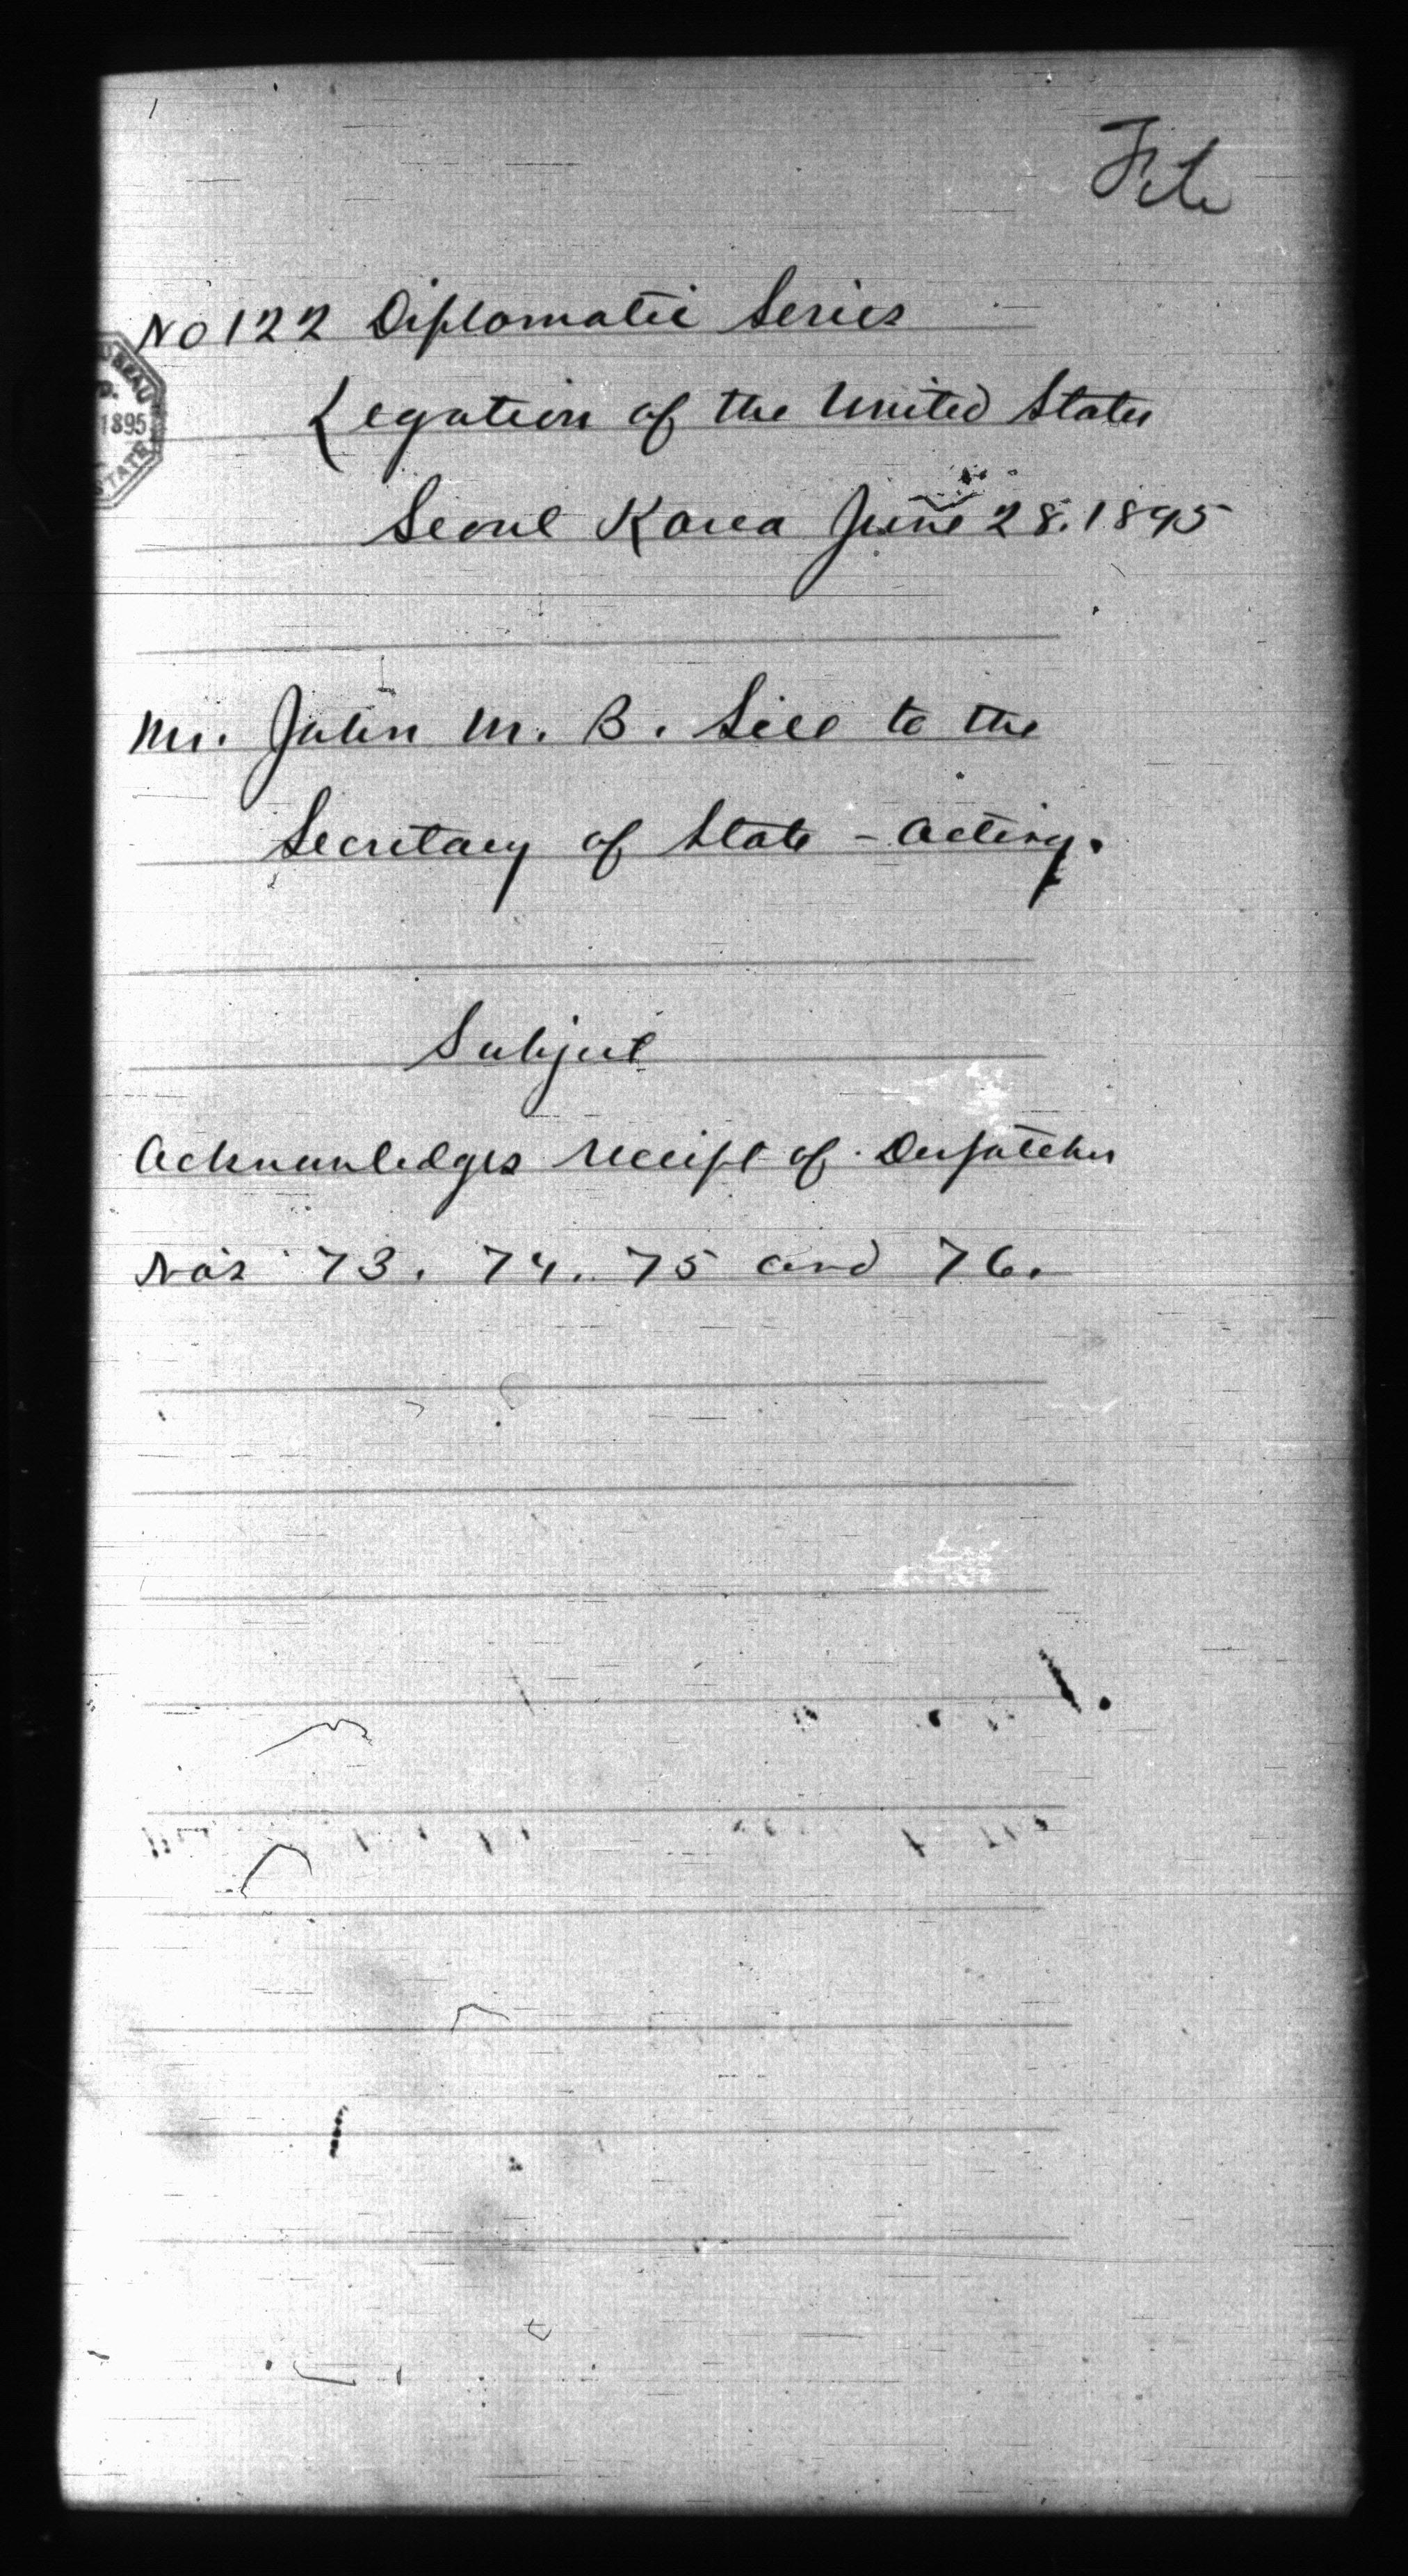 File
No 122 Diplomatic Series
Legation of the United States
Seoul Korea June 28. 1895
Mr. John M. B. Sill to the
Secretary of State - Acting.
Subject
Acknowledges receipt of Despatches
No's 73. 74. 75 and 76.
1895